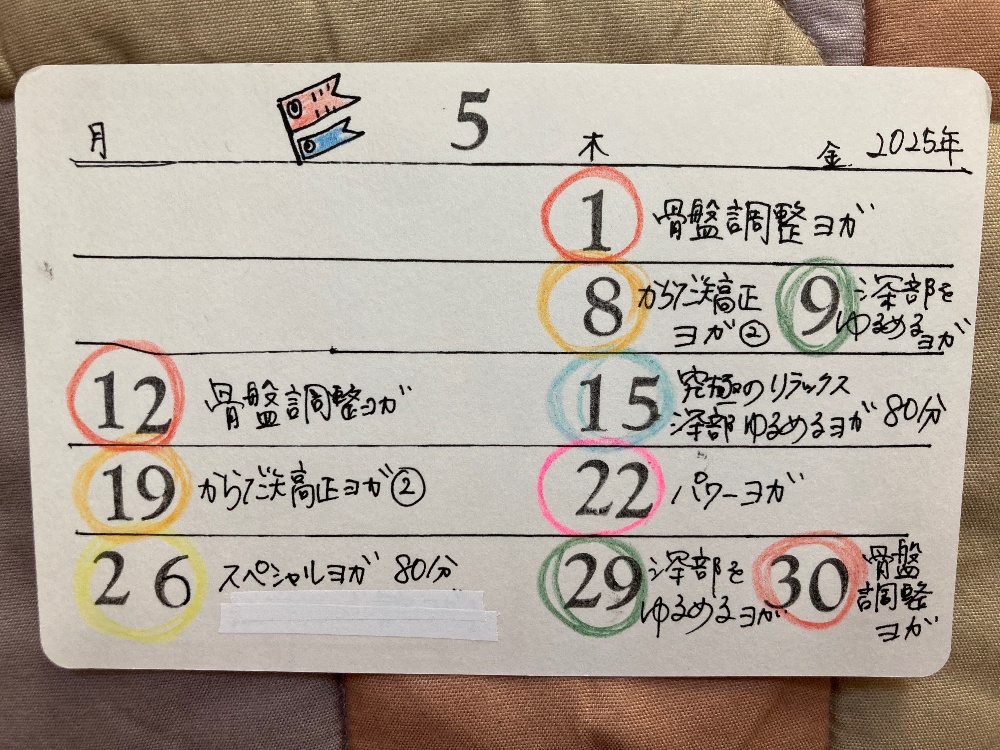 5
月 木 金 2025年
1 骨盤調整ヨガ
8 からだ矯正
ヨガ②
9 深部を
ゆるめる
ヨガ
12 骨盤調整ヨガ
15 究極のリラックス
深部ゆるめるヨガ 80分
19 からだ矯正ヨガ②
22 パワーヨガ
26 スペシャルヨガ 80分
29 深部を
ゆるめるヨガ
30 骨盤
調整
ヨガ